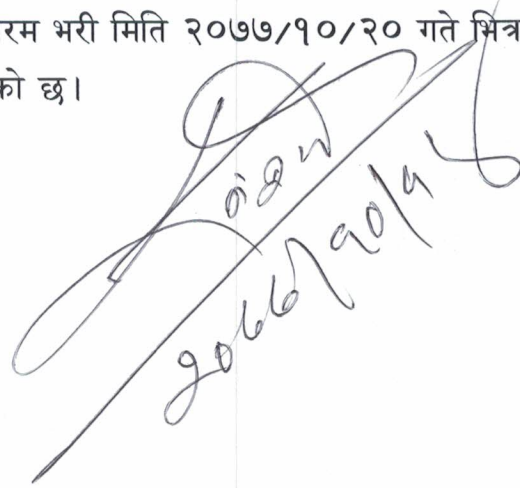 रम भरी मिति २०७७/१०/२० गते भित्र
को छ।
२०७७/१०/१५